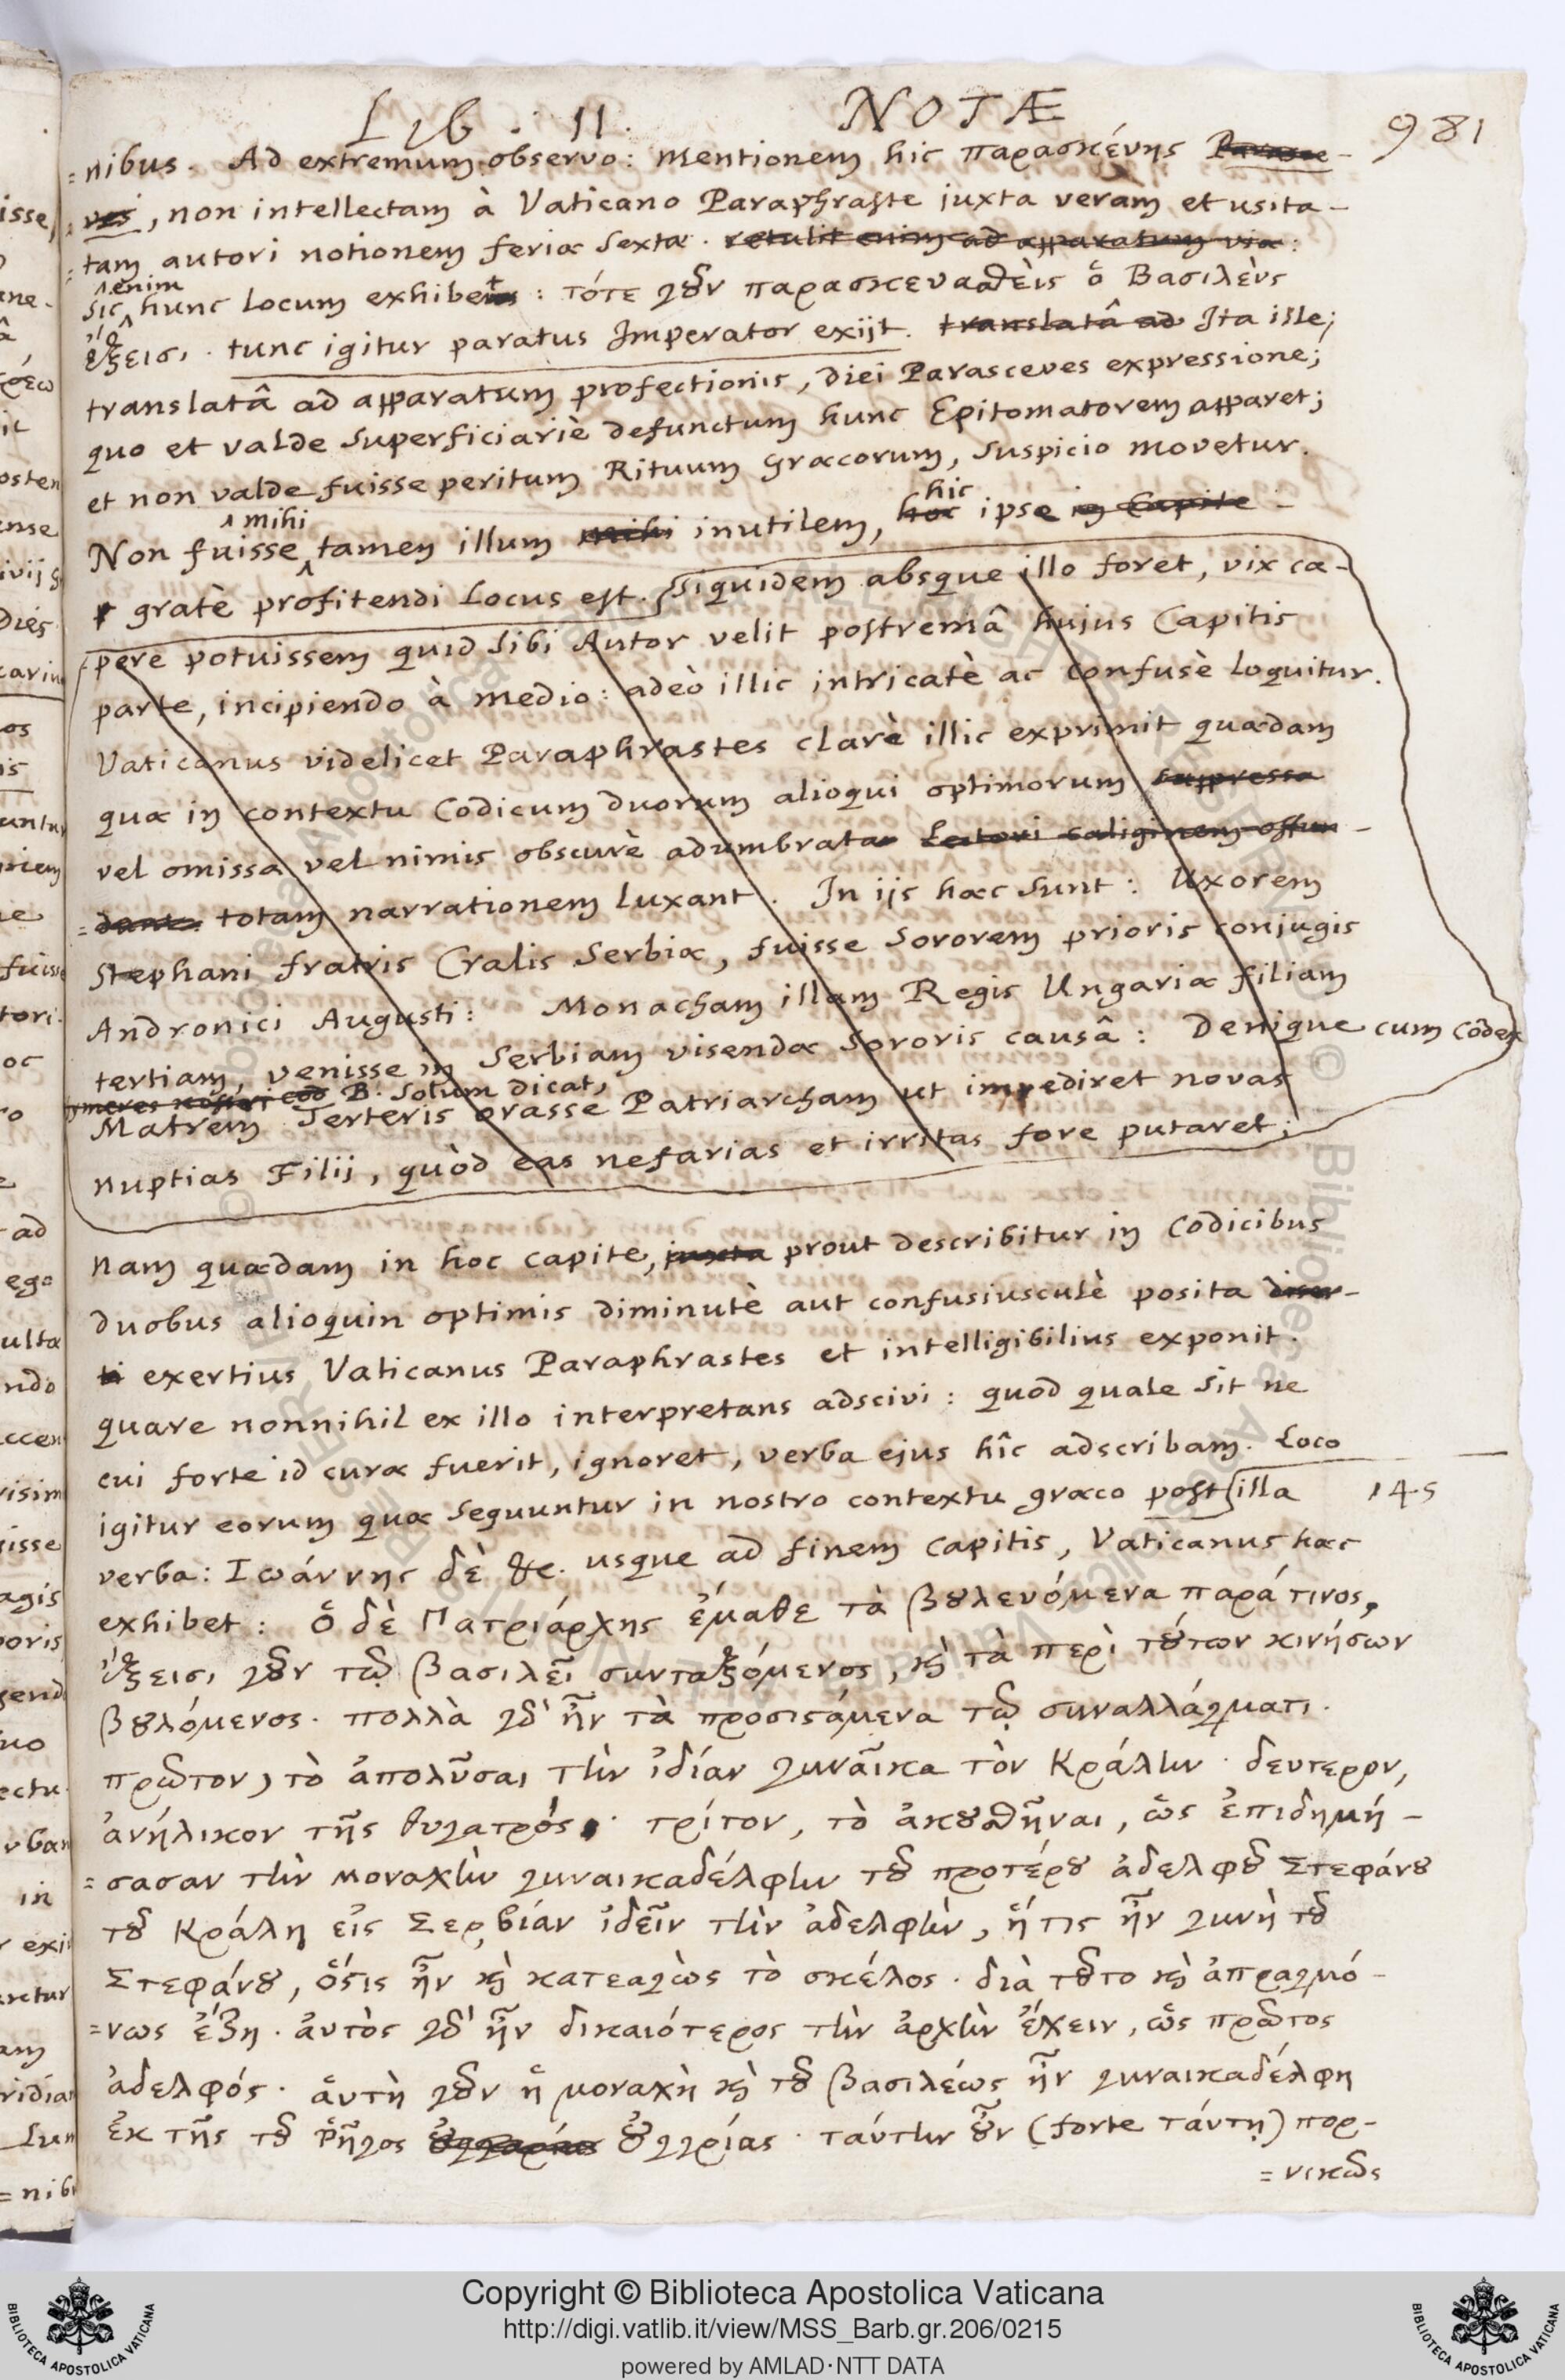 Lib. II. NOTÆ 981
= nibus. Ad extremum observo: mentionem hic παρασκένης Parasce-
ves, non intellectam à Vaticano Paraphraste juxta veram et usita-
= tam autori notionem feriæ sextæ. retulit enim ad apparatum viæ:
sic enim hunc locum exhibet: τότε γ㠌ν παρασκεναϑεὶς ὁ Βασιλὲυς
ἔξεισι. tunc igitur paratus Imperator exijt. translatâ ad Ita ille;
translatâ ad apparatum profectionis, diei Parasceves expressione;
quo et valde superficiariè defunctum hunc Epitomatorem apparet;
et non valde fuisse peritum Rituum Græcorum, suspicio movetur.
Non fuisse mihi tamen illum mihi inutilem, hoc hic ipse in Capite
gratè profitendi locus est. siquidem absque illo foret, vix ca-
pere potuissem quid sibi Autor velit postremâ hujus Capitis
parte, incipiendo à medio: adeò illic intricatè ac confusè loquitur.
Vaticanus videlicet Paraphrastes clarè illic exprimit quædam
quæ in contextu Codicum duorum alioqui optimorum suppressa
vel omissa vel nimis obscurè adumbrata Lectori caliginem offun-
= dante totam narrationem luxant. In ijs hæc sunt: Uxorem
Stephani fratris Cralis Serbiæ, fuisse sororem prioris conjugis
Andronici Augusti: Monacham illam Regis Ungariæ filiam
tertiam, venisse in Serbiam visendæ sororis causâ: Denique cum Codex
B. solum dicat,
Matrem Terteris orasse Patriarcham ut impediret novas
nuptias Filij, quòd eas nefarias et irritas fore putaret;
nam quædam in hoc capite, juxta prout describitur in Codicibus
duobus alioquin optimis diminutè aut confusiusculè posita diser-
ti exertius Vaticanus Paraphrastes et intelligibilius exponit.
quare nonnihil ex illo interpretans adscivi: quod quale sit ne
cui forte id curæ fuerit, ignoret, verba ejus hîc adscribam. Loco
igitur eorum quæ sequuntur in nostro contextu græco post illa 145
verba: Ιωάννης δὲ &c. usque ad finem capitis, Vaticanus hæc
exhibet: ὁ δὲ Πατριάρχης ἔμαθε τὰ βȣλενόμενα παρά τινος,
ἔξεισι γȣ͂ν τῷ βασιλεῖ συνταξόμενος, ϗ τὰ περὶ τȣ́των κινήσων
βȣλόμενος. πολλὰ γδ' ἦν τὰ προσιςάμενα τῷ συναλλάγματι.
πρῶτον, τὸ ἀπολῦσαι τὴν ἰδίαν γυναῖκα τὸν Κράλην. δευτερον,
ἀνήλικον τῆς θυγατρός. τρίτον, τὸ ἀκȣϑῆναι, ὡς ἐπιδημή-
= σασαν τὴν μοναχὴν γυναικαδέλφην τȣ͂ προτέρȣ ἀδελφȣ͂ Στεφάνȣ
τȣ͂ Κράλη εἰς Σερβίαν ἰδεῖν τὴν ἀδελφὴν, ἥτις ἦν γυνὴ τȣ͂
Στεφάνȣ, ὅςις ἦν ϗ κατεαγὼς τὸ σκέλος. διὰ τȣ͂το ϗ ἀπραγμό-
= νως ἔζη. ἀυτὸς γδ' ἦν δικαιότερος τὴν ἀρχὴν ἔχειν, ὡς πρῶτος
ἀδελφός. ἁυτὴ γȣ͂ν ἡ μοναχὴ ϗ τȣ͂ βασιλέως ἦν γυναικαδέλφη
ἐκ τῆς τȣ͂ Ῥῆγος Ȣ̓γγρίας. τάυτην ȣ͂ν (forte τάυτῃ) πορ-
= νικῶς
Copyright © Biblioteca Apostolica Vaticana
http://digi.vatlib.it/view/MSS_Barb.gr.206/0215
powered by AMLAD·NTT DATA
BIBLIOTECA APOSTOLICA VATICANA
BIBLIOTECA APOSTOLICA VATICANA